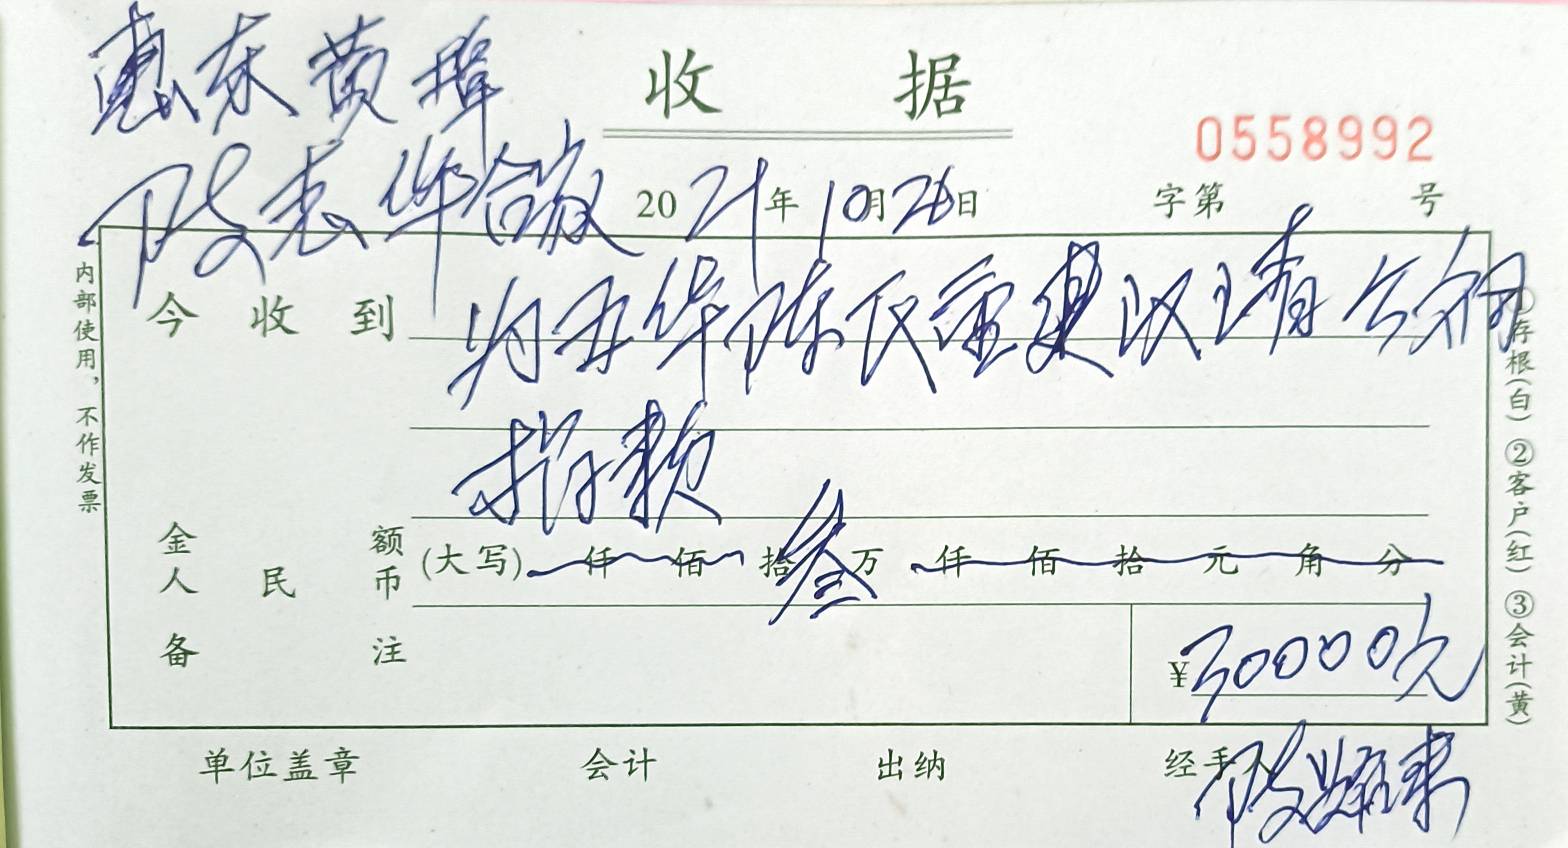 惠东黄埠
收 据
0558992
陈志华合家
2021年10月26日
字第 号
今收到 为五华陈氏重建以靖公祠
捐款
金额 人民币 (大写) 仟 佰 拾叁万 仟 佰 拾 元 角 分
备注
¥30000元
单位盖章 会计 出纳 经手人
内部使用，不作发票
①存根(白) ②客户(红) ③会计(黄)